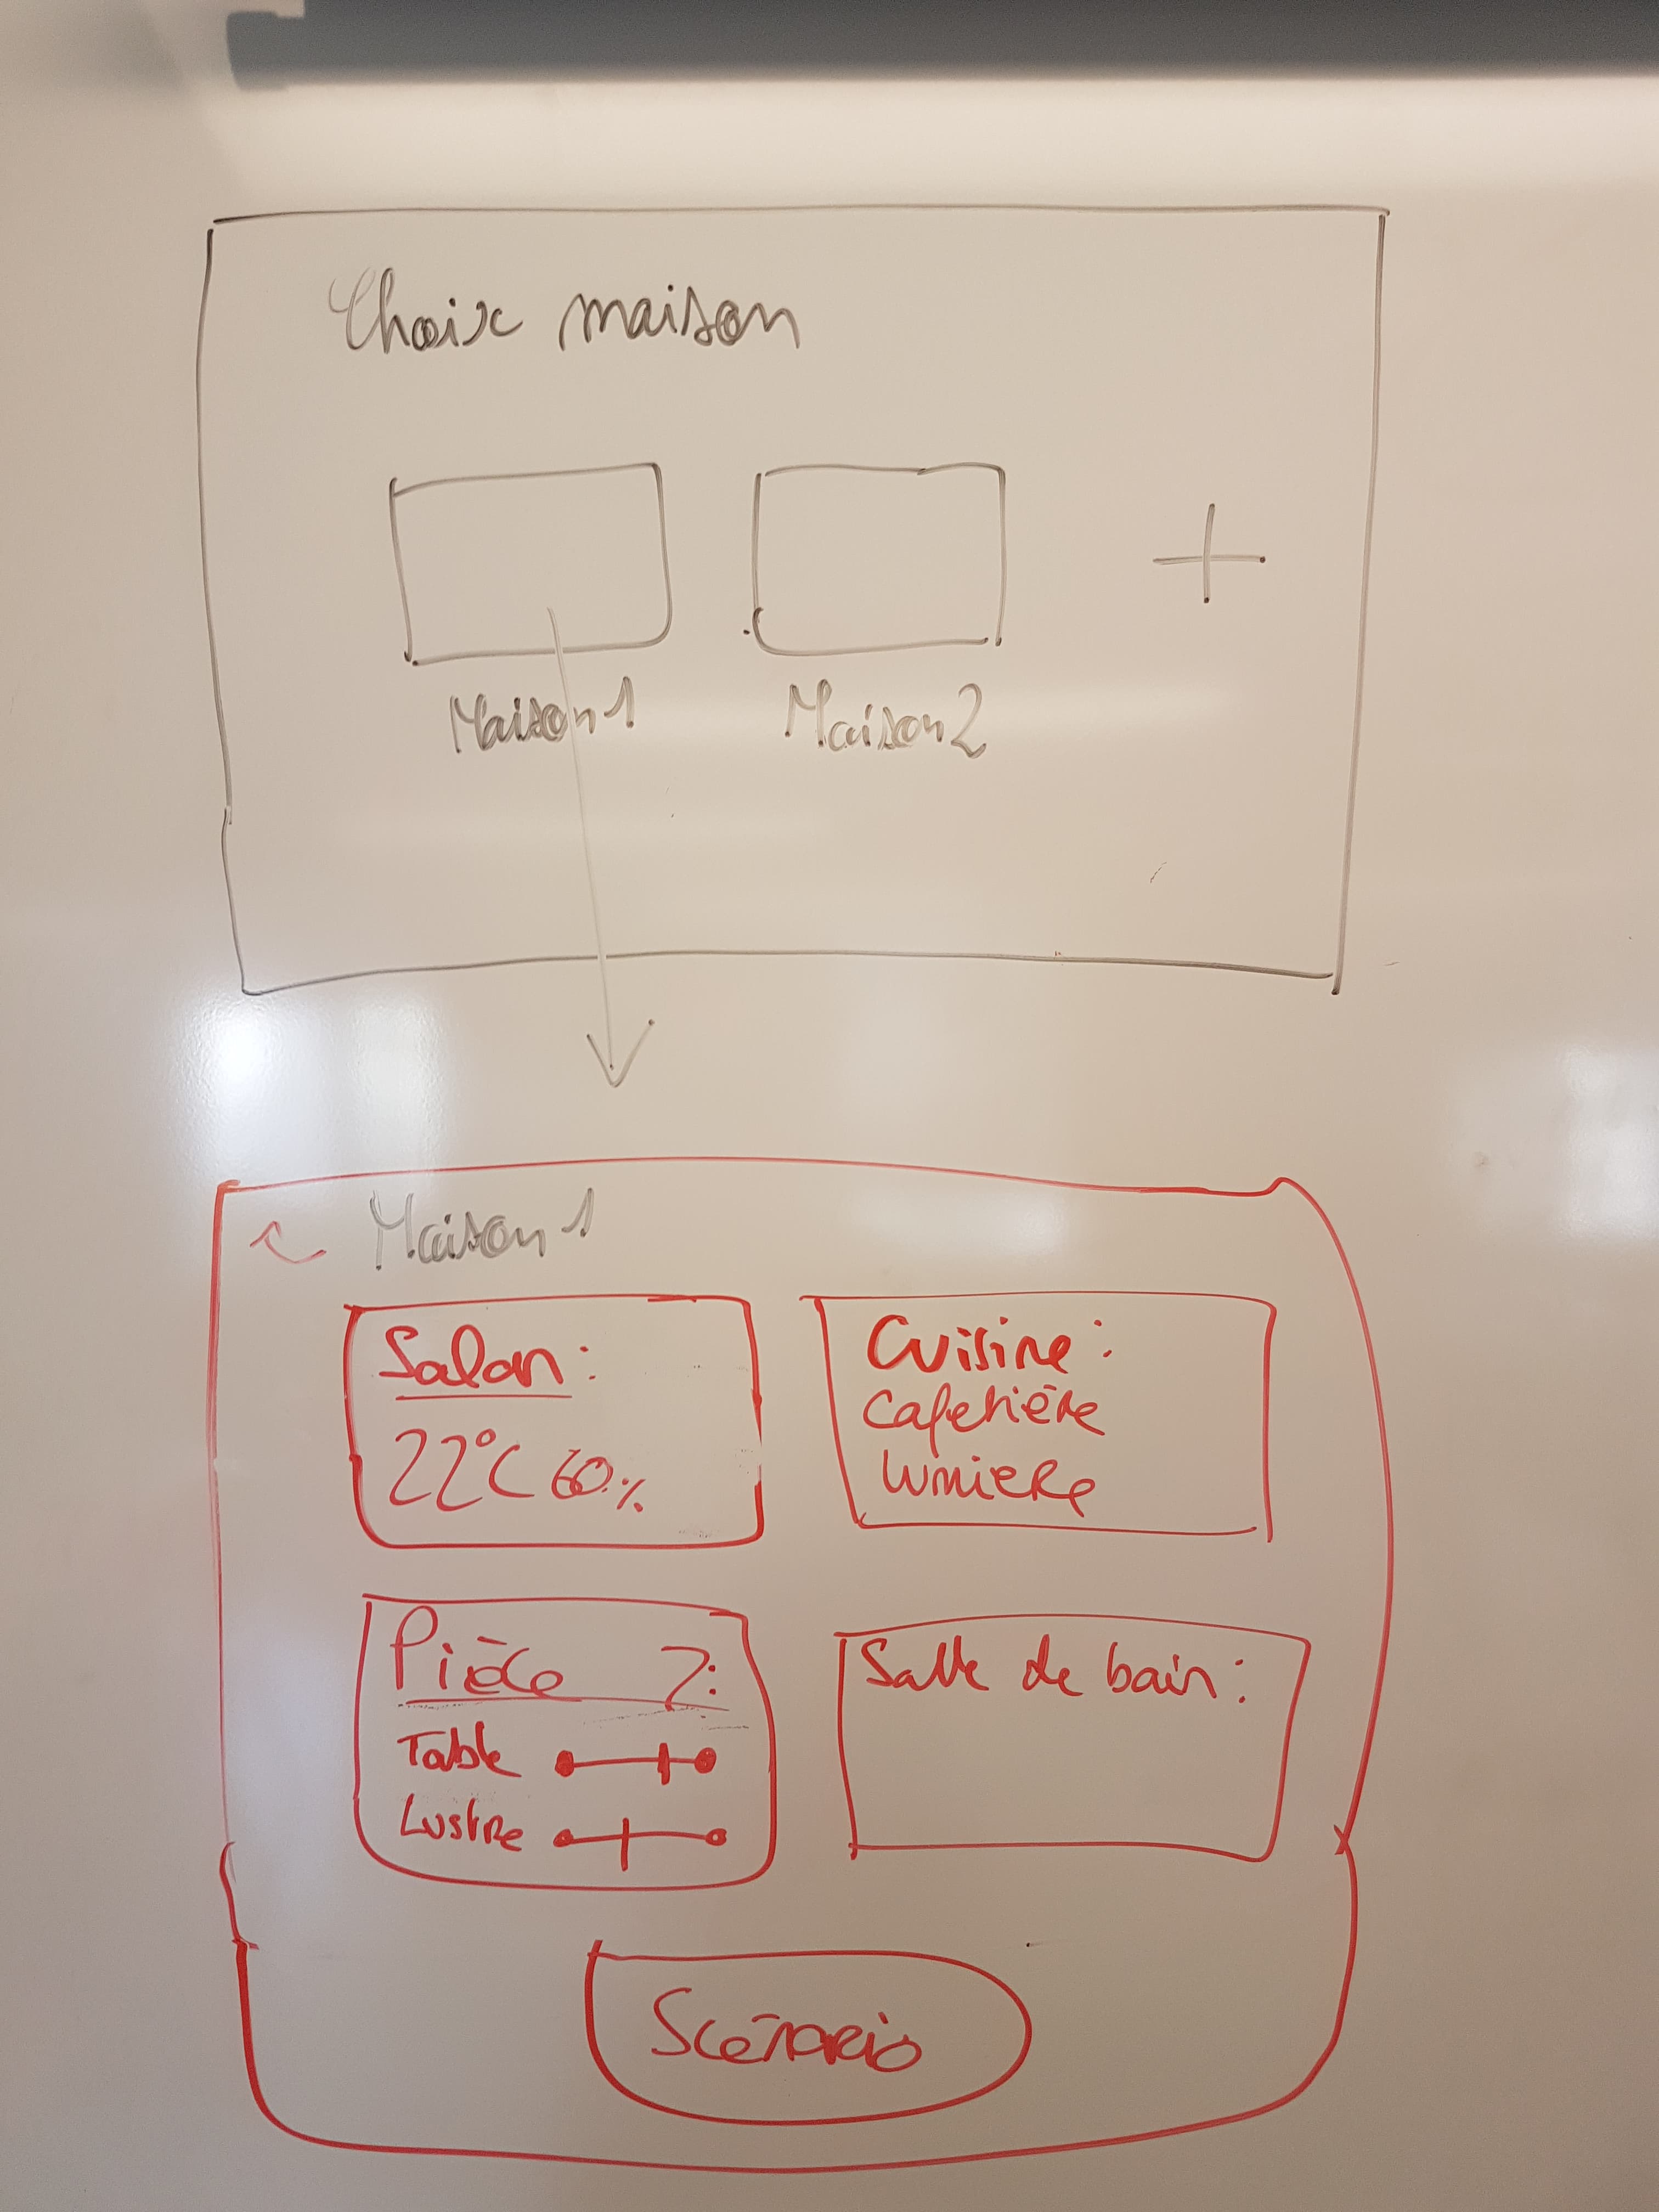 Choix maison
+
Maison 1 Maison 2
Maison 1
Salon :
22°C 60%
Cuisine :
Cafetière
lumière
Pièce 2 :
Table
Lustre
Salle de bain :
Scénario